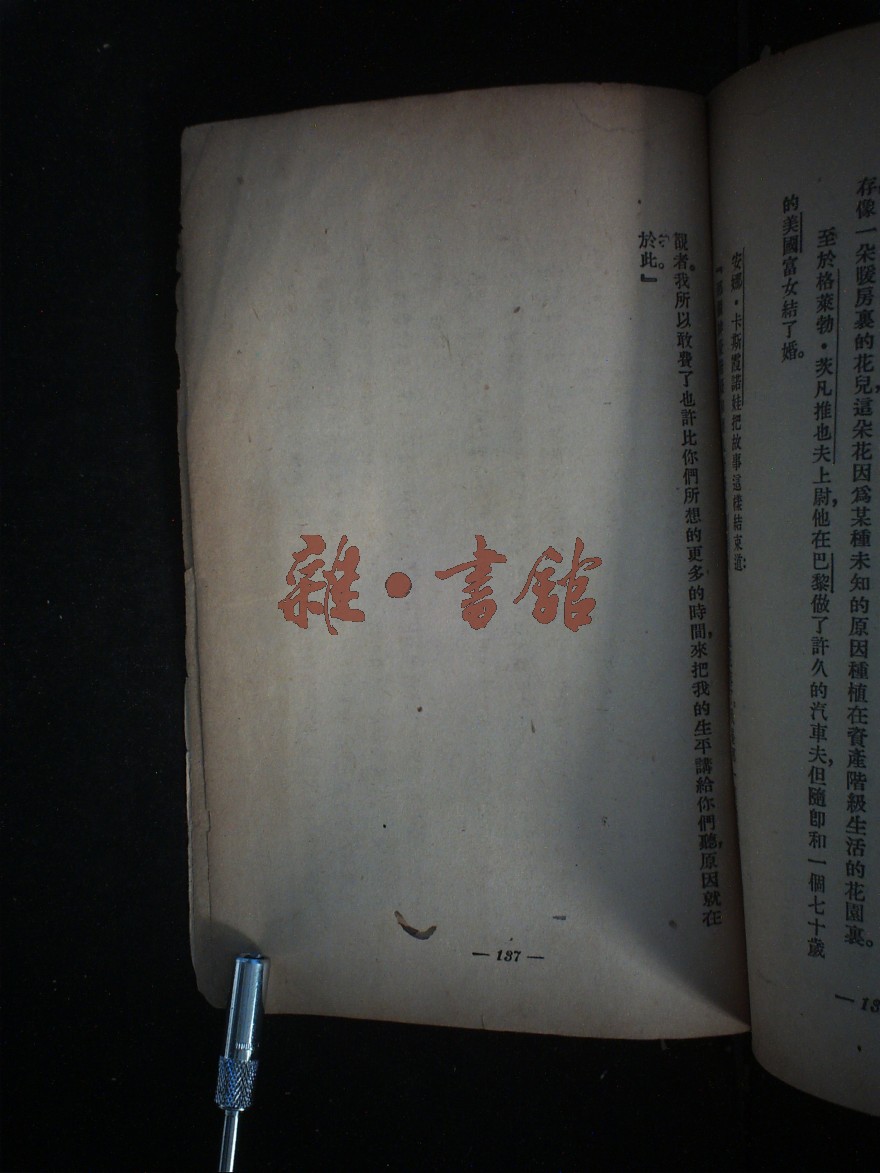 存像一朵暖房裏的花兒，這朵花因爲某種未知的原因種植在資產階級生活的花園裏。
至於格萊勃・茨凡推也夫上尉，他在巴黎做了許久的汽車夫，但隨卽和一個七十歲
的美國富女結了婚。
安娜・卡斯霞諾娃把故事這樣結束道：
觀者。我所以敢費了也許比你們所想的更多的時間，來把我的生平講給你們聽，原因就在
於此。』
— 137 —
雜・書館